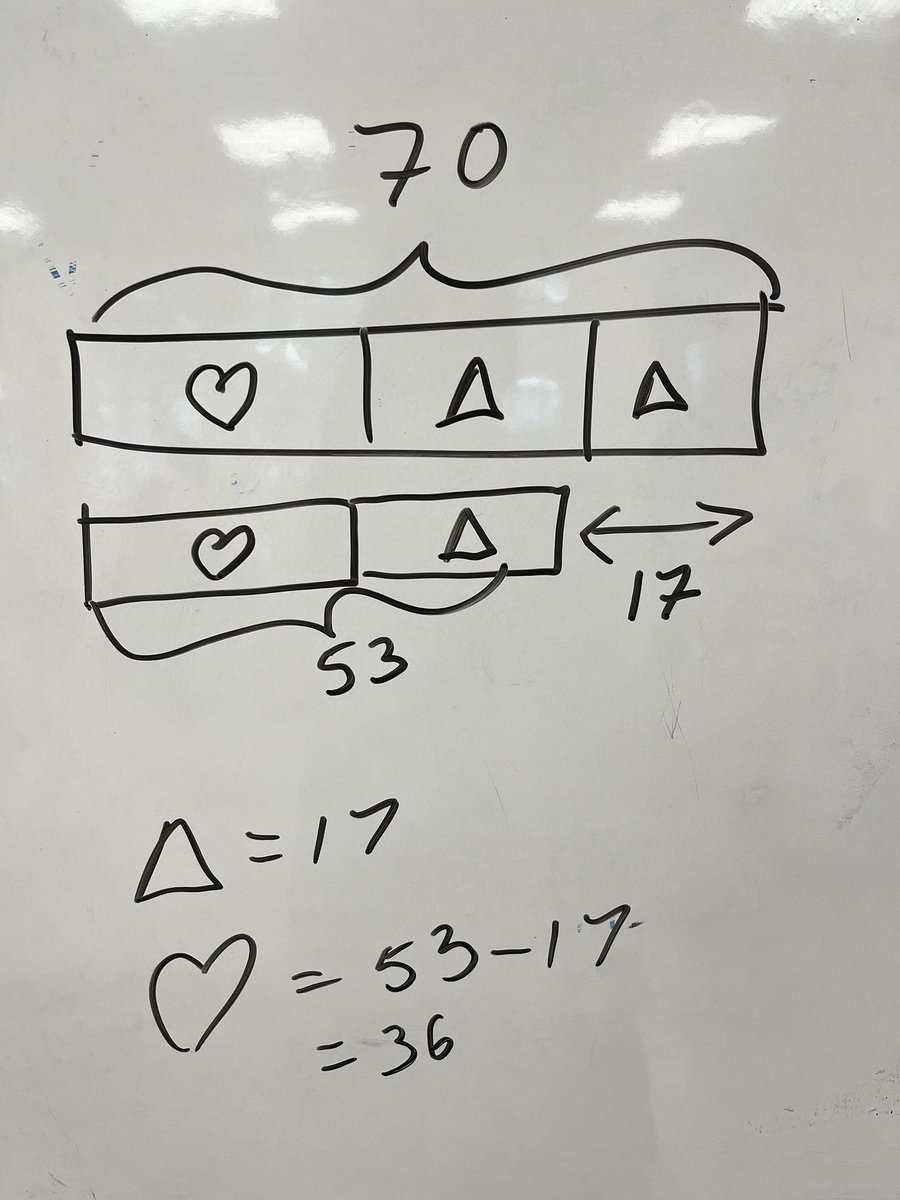 70
♡ △ △
♡ △
17
53
△ = 17
♡ = 53 - 17
= 36